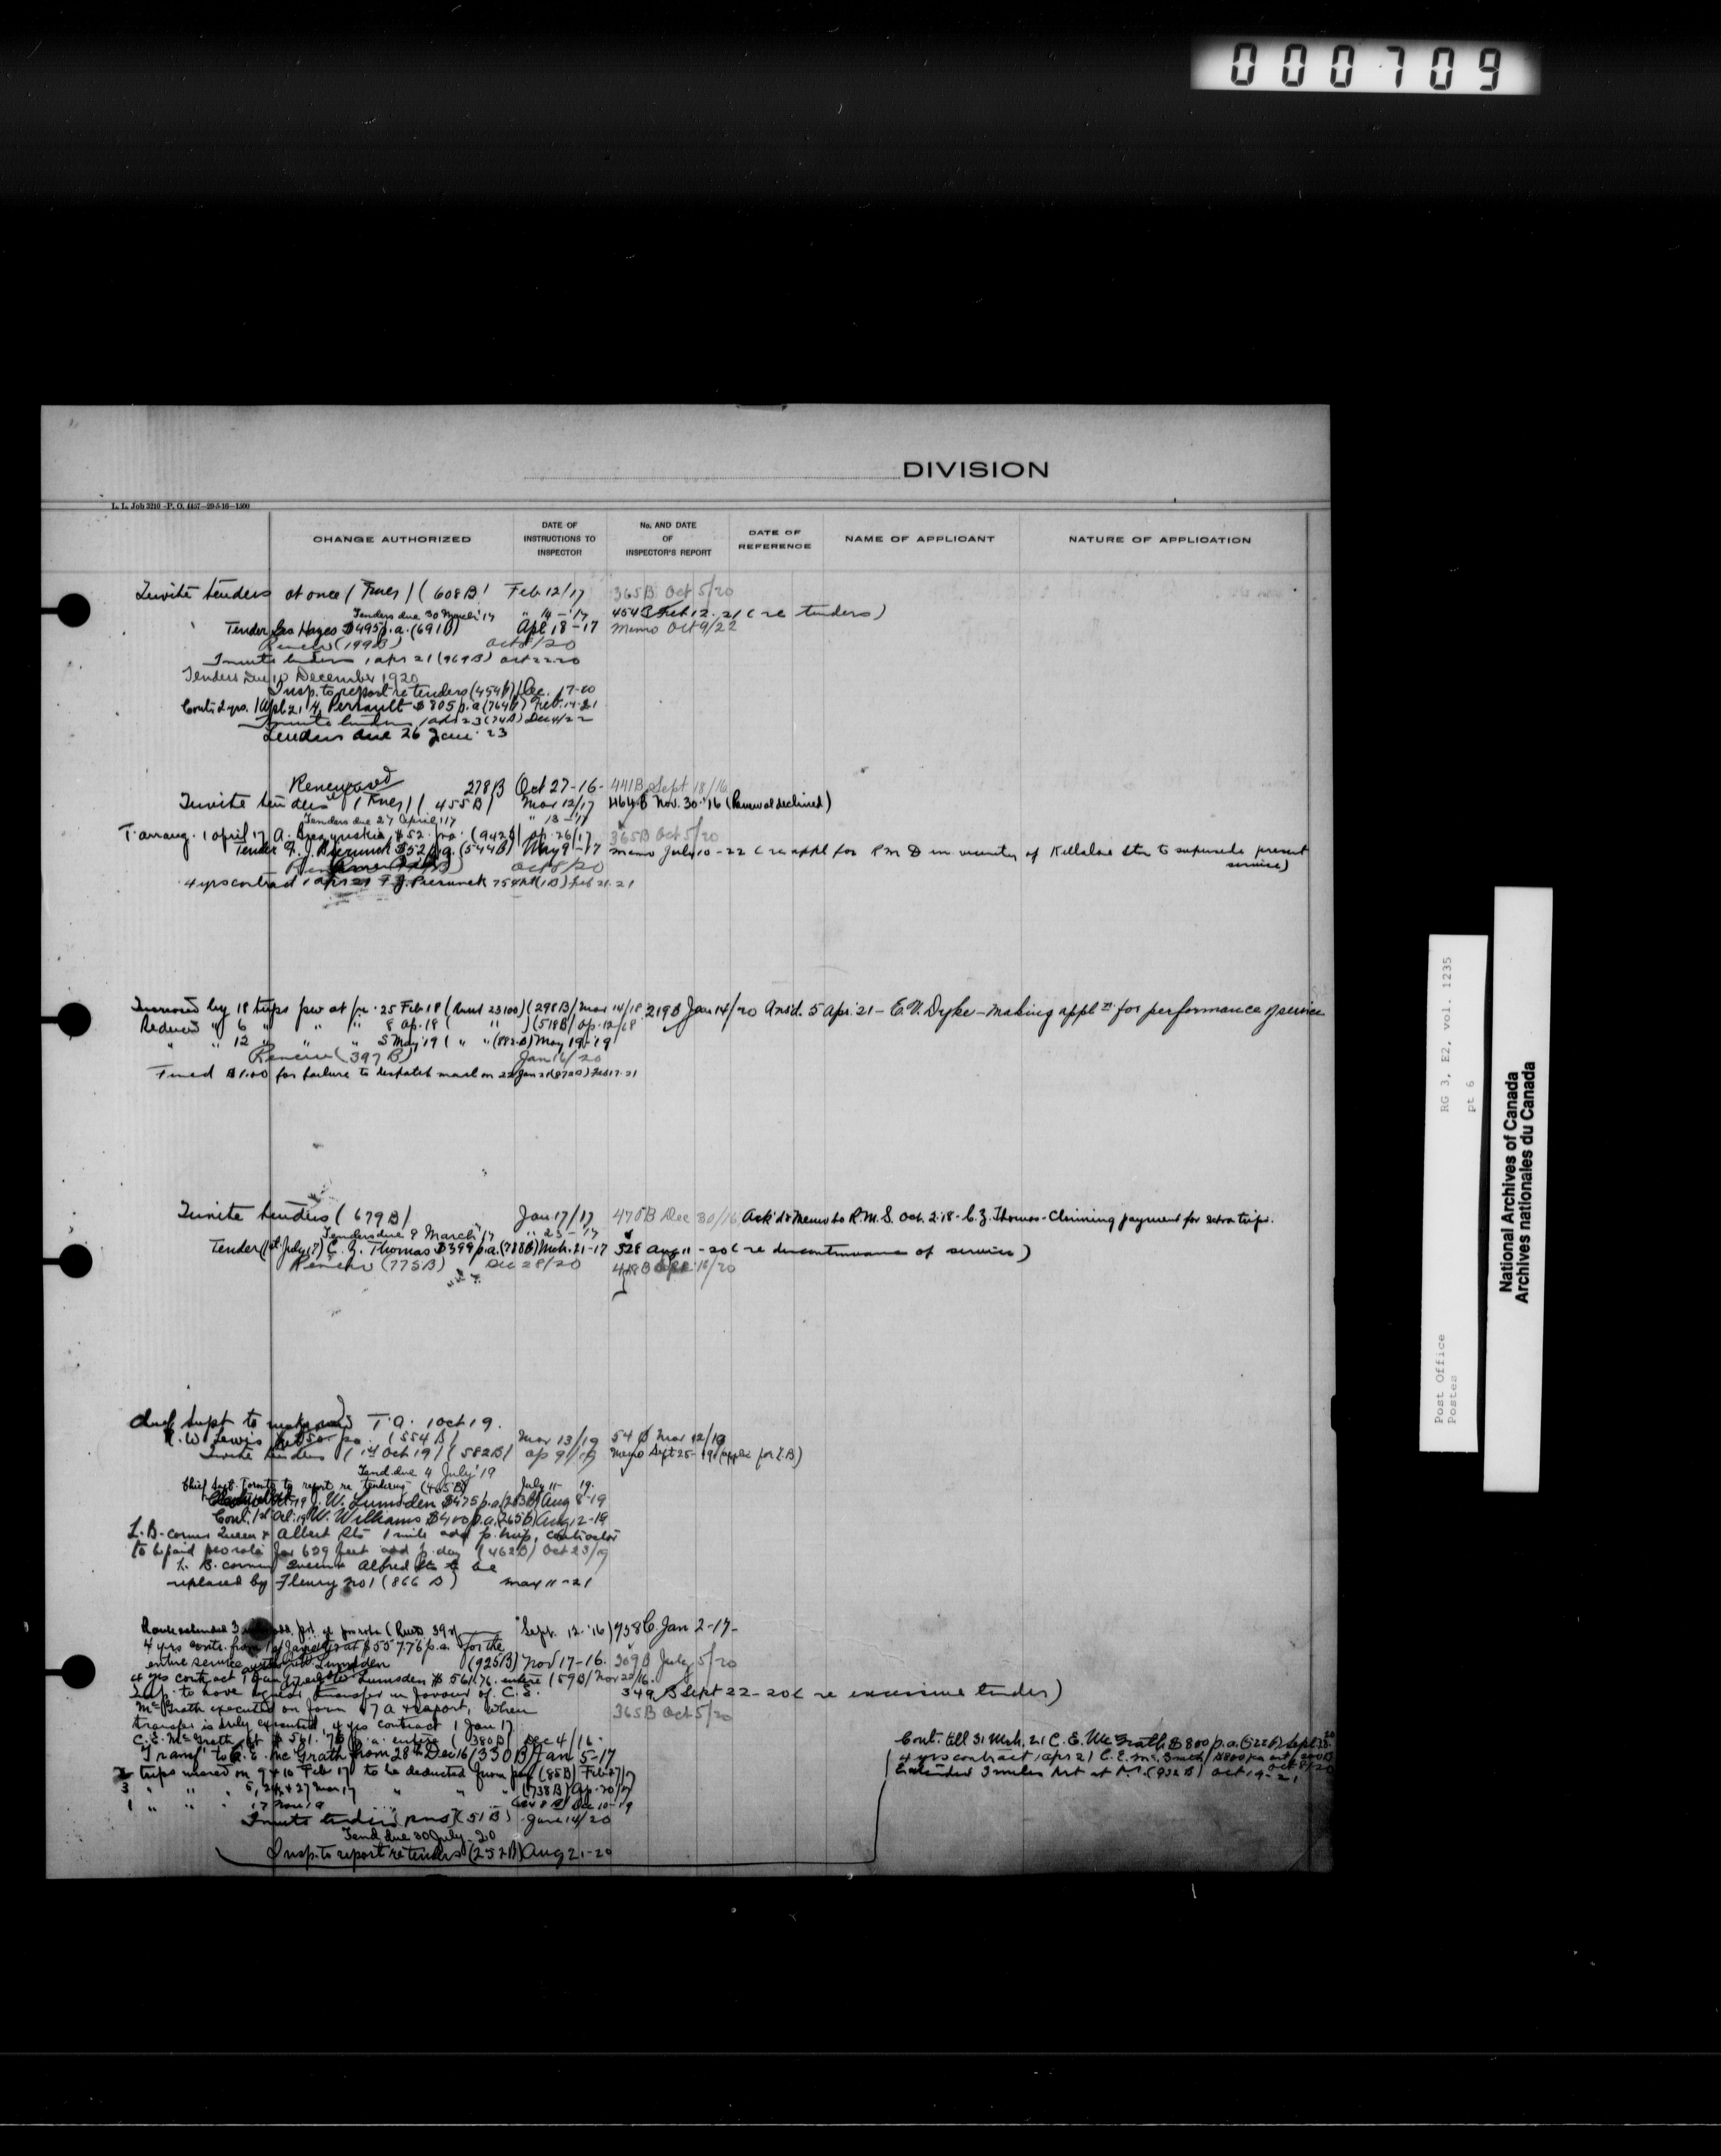 000709
DIVISION
L. L. Job 3210 - P. O. 4457-29-5-16-1500
CHANGE AUTHORIZED
DATE OF INSTRUCTIONS TO INSPECTOR
No. AND DATE OF INSPECTOR'S REPORT
DATE OF REFERENCE
NAME OF APPLICANT
NATURE OF APPLICATION
Invite tenders at once ( Frncs ) ( 608 B ) Feb 12/17 365B Oct 5/20
Tenders due 30 March '17 " 14 - '17 454B Feb 12. 21 ( re tenders )
Tender Geo Hayes $495 p.a. (691B) Apl 18-17 Memo Oct 9/22
Renew (199B) Oct 8/20
Invite tenders 1 apr 21 (969B) Oct 22-20
Tenders Due 10 December 1920
Insp. to report re tenders (454B) Dec. 17-20
Cont. 2 yrs. 1 Apl. 21 Perrault $805 p.a (764B) Feb. 14-21
Invite tenders 1 apr 23 (74B) Dec 4/22
Tenders due 26 Jan. 23
Renewed 278B Oct 27-16- 441B Sept 18/16
Invite tenders ( Frncs ) ( 455 B ) Mar 12/17 464B Nov. 30-'16 (Renewal declined)
Tenders due 27 April '17 " 13 - '17
T. arrang. 1 april 17 A. $52 pa. (942B) ap. 26/17 365B Oct 5/20
Tender F. J. $52 p.a. (544B) May 9-17 memo July 10-22 ( re appl for R M D in vicinity of Killaloe Stn to supersede present
service)
Oct 8/20
4 yrs contract 1 apr 21 F. J. 75 (1B) Feb 21. 21
Increased by 18 trips pw at p.r. 25 Feb 18 ( Aunt 23100 ) ( 298B ) Mar 14/18 219B Jan 14/20 Ans'd. 5 Apr. 21 - E. V. Dyke - making appl'n for performance of service
Reduced " 6 " " " 8 ap. 18 ( " ) (518B) ap. 12/18
" " 12 " " " 5 May '19 ( " " (882B) May 19-'19
Renew ( 397 B ) Jan 16/20
Fined $1.00 for failure to despatch mail on 22 Jan 21 (872B) Feb 17. 21
Invite tenders ( 679 B ) Jan 17/17 475B Dec 30/16 Ack'd & Memo to R.M.S. Oct. 2-18 - C. Z. Thomas - Claiming payment for extra trips.
Tenders due 9 March '17 " 23 - '17
Tender (1st July 17) C. Z. Thomas $399 p.a. (788B) Mch. 21-17 528 Aug 11 - 20 ( re discontinuance of service )
Renew (775B) Dec 28/20 418B 16/20
Chief Supt to make T. A. 1 Oct 19.
R. W. Lewis pa. ( 554 B ) Mar 13/19 54 B Mar 12/19
Invite tenders ( 1st Oct 19 ) ( 582B ) ap 9/19 Memo Sept 25-19 (applic for L.B)
Tend. due 4 July '19
Chief Supt. Toronto to report re tenders July 11 - 19.
J. W. Lumsden $475 p.a. Aug 8-19
Cont. 1st Oct. 19 W. Williams $400 p.a. (265B) Aug 12-19
L. B. corner Queen & Albert Sts 1 mile add p. trip, contractor
to be paid pro rata for 629 feet add p. day (462B) Oct 23/19
L. B. corner Queen & Alfred Sts to be
replaced by Fleury no 1 ( 866 B ) Mar 11-21
Route extended 3 Sept. 12-'16 ) 758B Jan 2-17-
4 yrs contr. from 1 Jan 17 at $557.76 p.a. for the
entire service with Lumsden (925B) Nov 17-16. 209 B July 5/20
4 yrs contract 1 Jan 17 Lumsden $561.76 entire (59B) Nov 22/16.
Insp. to have transfer in favour of C. E. 349 B Sept 22-20 ( re excessive tender )
McGrath executed on form 17 A & report, when 365B Oct 5/20
transfer is duly executed, 4 yrs contract 1 Jan 17
C. E. McGrath $561.76 p. a. entire ( 380B ) Dec 4/16.
Transf. to C. E. McGrath from 28th Dec 16 (330B) Jan 5-17
2 trips missed on 9 & 10 Feb 17 to be deducted from pay (85B) Feb 27/17
3 " " " 5, 26 & 27 Mar 17 " " " (738B) Ap. 20/17
1 " " " 17 Nov 19 Dec 10-19
Invite tenders (51B) June 14/20
Tend due 30 July - 20
Insp. to report re tenders (252B) Aug 21-20
Cont. till 31 Mch. 21 C. E. McGrath $800 p.a. (522B) Sept 28-20
4 yrs contract 1 apr 21 C. E. McGrath $800 pa ent (200B) Oct 8/20
Extended 3 miles (932B) Oct 19-21
RG 3, E2, vol. 1235
pt 6
Post Office
Postes
National Archives of Canada
Archives nationales du Canada